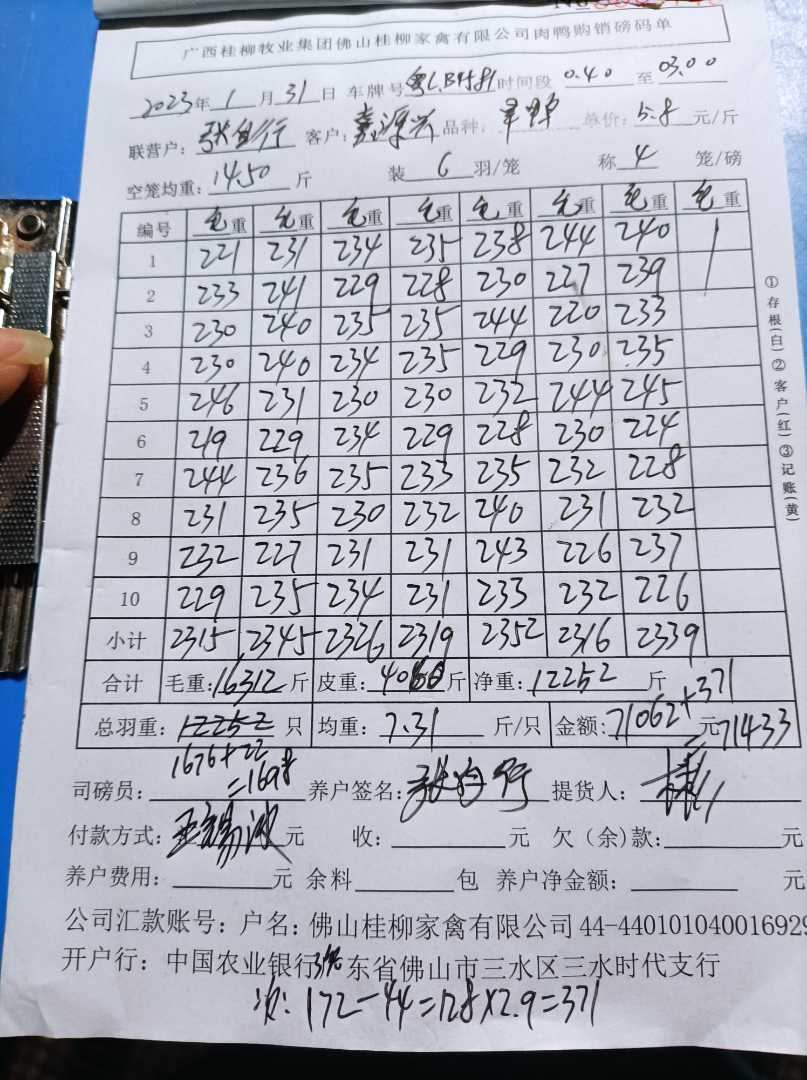 No
广西桂柳牧业集团佛山桂柳家禽有限公司肉鸭购销磅码单
2023年 1 月 31 日 车牌号 时间段 0.40 至 03.00
联营户: 客户: 嘉源兴 品种: 单价: 5.8 元/斤
空笼均重: 14.50 斤 装 6 羽/笼 称 4 笼/磅
编号 毛重 毛重 毛重 毛重 毛重 毛重 毛重 毛重
1 221 231 234 235 238 244 240 1
2 233 241 229 228 230 227 239
3 230 240 235 235 244 220 233
4 230 240 234 235 229 230 235
5 246 231 230 230 232 244 245
6 219 229 234 229 228 230 224
7 244 236 235 233 235 232 228
8 231 235 230 232 240 231 232
9 232 227 231 231 243 226 237
10 229 235 234 231 233 232 226
小计 2315 2345 2326 2319 2352 2316 2339
合计 毛重: 16312 斤 皮重: 4060 斤 净重: 12252 斤
总羽重: 12252 只 均重: 7.31 斤/只 金额: 71062+371 元 =71433
1676+22
=1698
司磅员: 养户签名: 提货人:
付款方式: 元 收: 元 欠(余)款: 元
养户费用: 元 余料 包 养户净金额: 元
公司汇款账号: 户名: 佛山桂柳家禽有限公司 44-440101040016929
开户行: 中国农业银行 东省佛山市三水区三水时代支行
次: 172-44=128×2.9=371
①存根(白)②客户(红)③记账(黄)